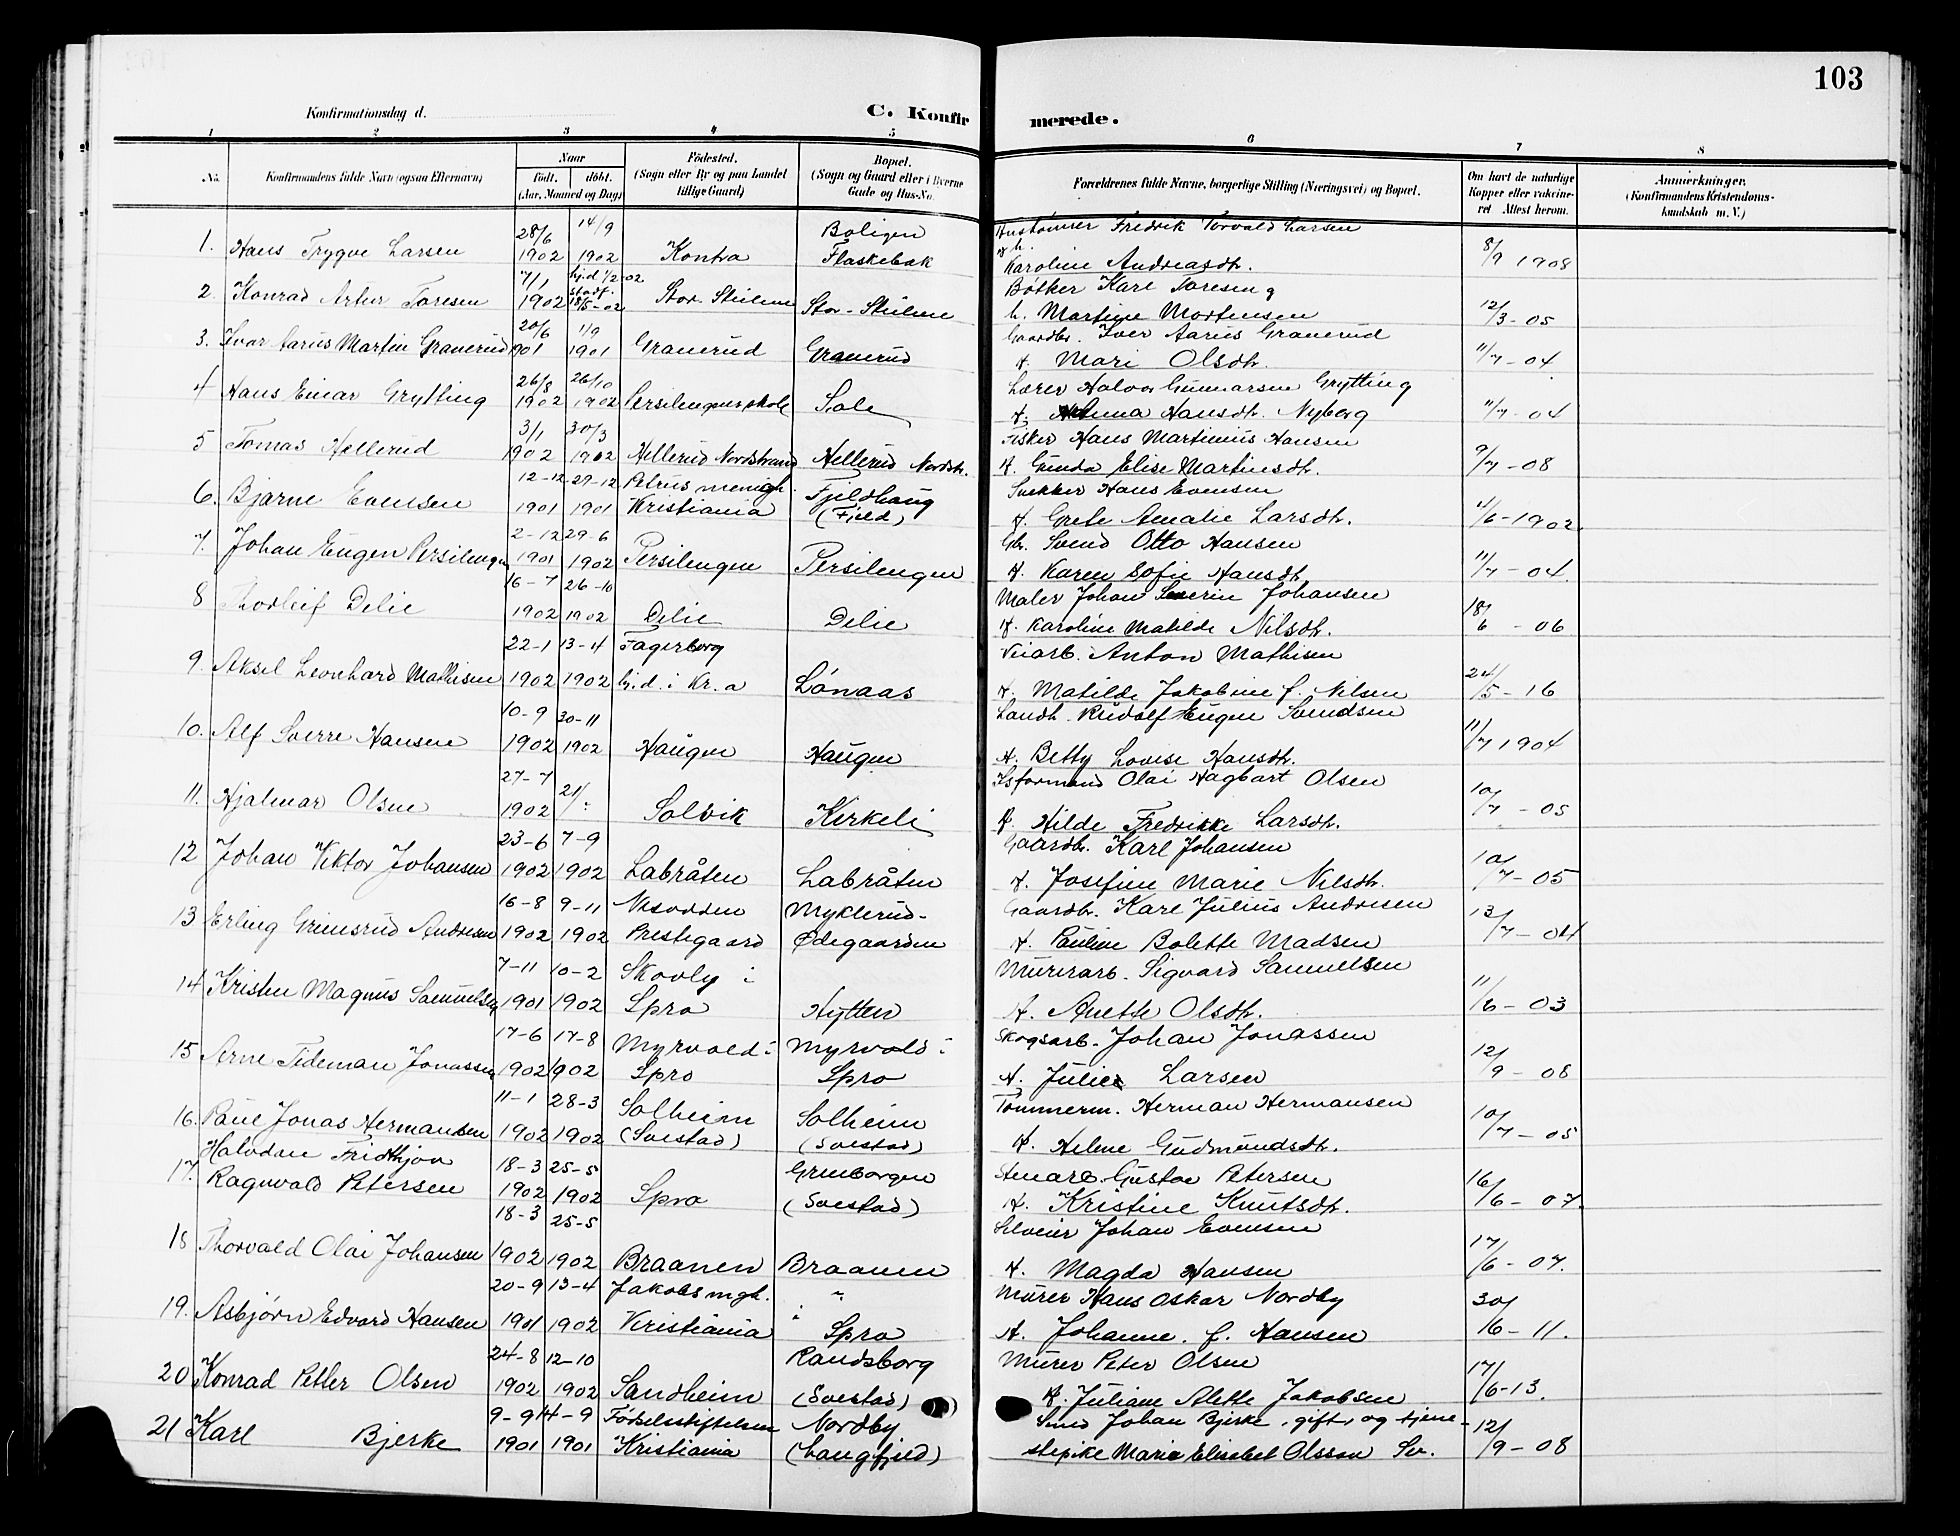 103
Konfirmationsdag d.
C. Konfirmerede.
1 2 3 4 5 6 7 8
No. Konfirmandens fulde Navn (ogsaa Efternavn) Naar født. døbt. (Aar, Maaned og Dag) Fødested. (Sogn eller By og paa Landet tillige Gaard) Bopæl. (Sogn og Gaard eller i Byerne Gade og Hus-No. Forældrenes fulde Navne, borgerlige Stilling (Næringsvei) og Bopæl. Om havt de naturlige Kopper eller vakcineret Attest herom. Anmærkninger. (Konfirmandens Kristendomskundskab m. V.)
28/6 14/9 Boligen Fredrik Torvald Larsen
1. Hans Trygve Larsen 1902 1902 Kontra Flaskebæk Karoline Andreasdt. 8/9 1908
7/1 hj.d. 1/2-02 stadf. Bøtker Karl Toresen
2. Konrad Artur Toresen 1902 18/5-02 Stor Skilene Stor-Skilene h. Martine Mortensen 12/3-05
20/6 1/9 Gaardbr. Iver Aarus Granerud
3. Ivar Aarus Martin Granerud 1901 1901 Granerud Granerud h. Mari Olsdt. 11/7-04
26/8 26/10 Lærer Halvor Gunnarsen Grytting
4 Hans Einar Grytting 1902 1902 Persilengen skole Sole h. Anna Hansdt. Nyborg 11/7-04
3/1 30/3 Fisker Hans Martinius Hansen
5 Tomas Hellerud 1902 1902 Hellerud Nordstrand Hellerud Nordstr. h. Gunda Elise Martinsdt. 9/7-08
12-12 29-12 Petrus menigh. Fjeldhaug Snekker Hans Evensen
6. Bjarne Evensen 1901 1901 Kristiania (Fjeld) h. Grete Amalie Larsdt. 4/6-1902
2-12 29-6 Gbr. Svend Otto Hansen
7. Johan Eugen Persilengen 1901 1902 Persilengen Persilengen h. Karen Sofie Hansdt. 11/7-04
16-7 26-10 Maler Johan Severin Johansen
8 Thorleif Delie 1902 1902 Delie Delie h. Karoline Matilde Nilsdt. 18/6-06
22-1 13-4 Fagerborg Veiarb. Anton Mathisen
9. Aksel Leonhard Mathisen 1902 1902 hj.d. i Kr.a Lónaas h. Matilde Jakobine f. Nilsen 24/5-16
10-9 30-11 Landh. Rudolf Eugen Svendsen
10. Alf Sverre Hansen 1902 1902 Haugen Haugen h. Betty Lovise Hansdt. 11/7 1904
27-7 21/ Isformand Olai Hagbart Olsen
11. Hjalmar Olsen 1902 Solvik Kirkeli h. Hilde Fredrikke Larsdt. 10/7-05
23-6 7-9 Gaardbr. Karl Johansen
12 Johan Viktor Johansen 1902 1902 Labråten Labråten h. Josefine Marie Nilsdt. 10/7-05
16-8 9-11 Nesodden Myklerud- Gaardbr. Karl Julius Andresen
13 Erling Grimsrud Andresen 1902 1902 Prestegaard Ødegaarden h. Pauline Bolette Madsen 13/7-04
7-11 10-2 Skovly i Murerarb. Sigvard Samuelsen
14 Kristen Magnus Samuelsen 1901 1902 Spro Hytten h. Anette Olsdt. 11/6-03
17-6 17-8 Myrvold i Myrvold i Skogsarb. Johan Jonassen
15 Arne Tideman Jonassen 1902 1902 Spro Spro h. Julie Larsen 12/9-08
11-1 28-3 Solheim Solheim Tømmerm. Herman Hermansen
16. Paul Jonas Hermansen 1902 1902 (Svestad) (Svestad) h. Helene Gudmundsdt. 10/7-05
Halvdan Fridthjov 18-3 25-5 Grenborgen Stenarb. Gustav Petersen
17. Ragnvald Petersen 1902 1902 Spro (Svestad) h. Kristine Knutsdt. 16/6-07
18-3 25-5 Selveier Johan Evensen
18 Thorvald Olai Johansen 1902 1902 Braanen Braanen h. Magda Hansen 17/6-07.
20-9 13-4 Jakobs mgh. " Murer Hans Oskar Nordby
19. Asbjørn Edvard Hansen 1901 1902 Kristiania Spro h. Johanne. f. Hansen 30/6-11.
24-8 12-10 Randsborg Murer Peter Olsen
20 Konrad Petter Olsen 1902 1902 Sandheim (Svestad) h. Juliane Alette Jakobsen 17/6-13.
9-9 14-9 Fødselsstiftelsen Nordby Smed Johan Bjerke, gift, og tjene-
21 Karl Bjerke 1901 1901 Kristiania (Langfjeld) stepike Maria Elisabet Olsson Sv. 12/9-08